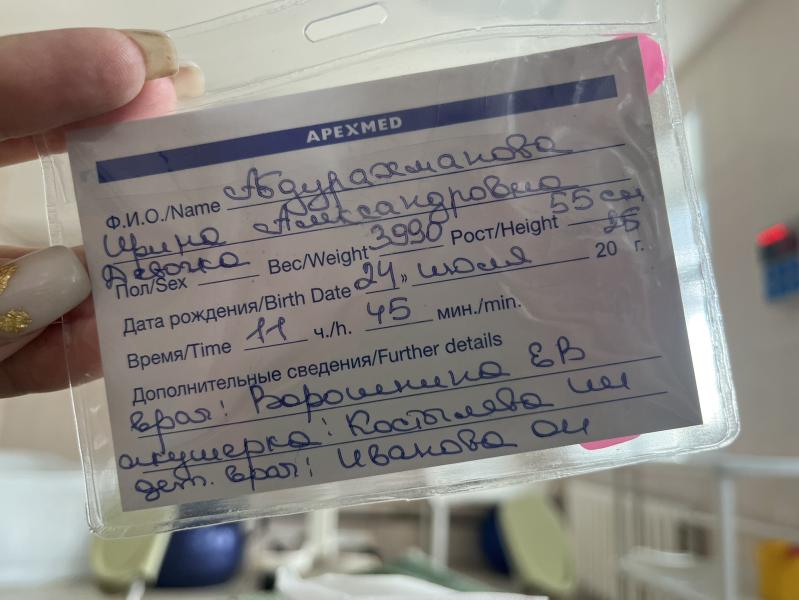 APEXMED
Ф.И.О./Name Абдурахманова
Ирина Александровна
Девочка
Пол/Sex Вес/Weight 3990 Рост/Height 55 см
Дата рождения/Birth Date 24 „ июля 20 25 г.
Время/Time 11 ч./h. 45 мин./min.
Дополнительные сведения/Further details
врач: Варошнина ЕВ
акушерка: Костылева
дет. врач: Иванова ОИ